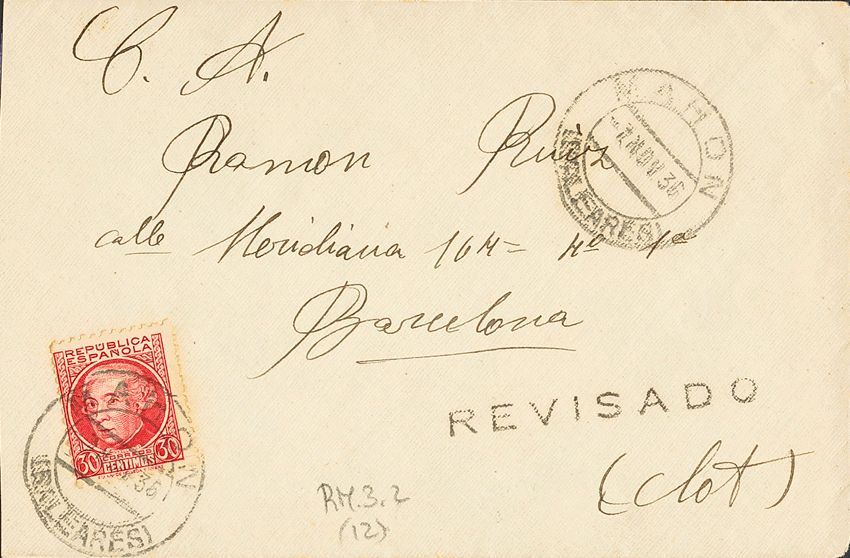 C. A.
Ramon Ruiz
calle Meridiana 104= 4º 1ª
Barcelona
MAHON
-7.NOV.36
(BALEARES)
REPÚBLICA
ESPAÑOLA
CORREOS
30 CÉNTIMOS 30
MAHON
36
(BALEARES)
REVISADO
(Clot)
RM.3.2
(12)